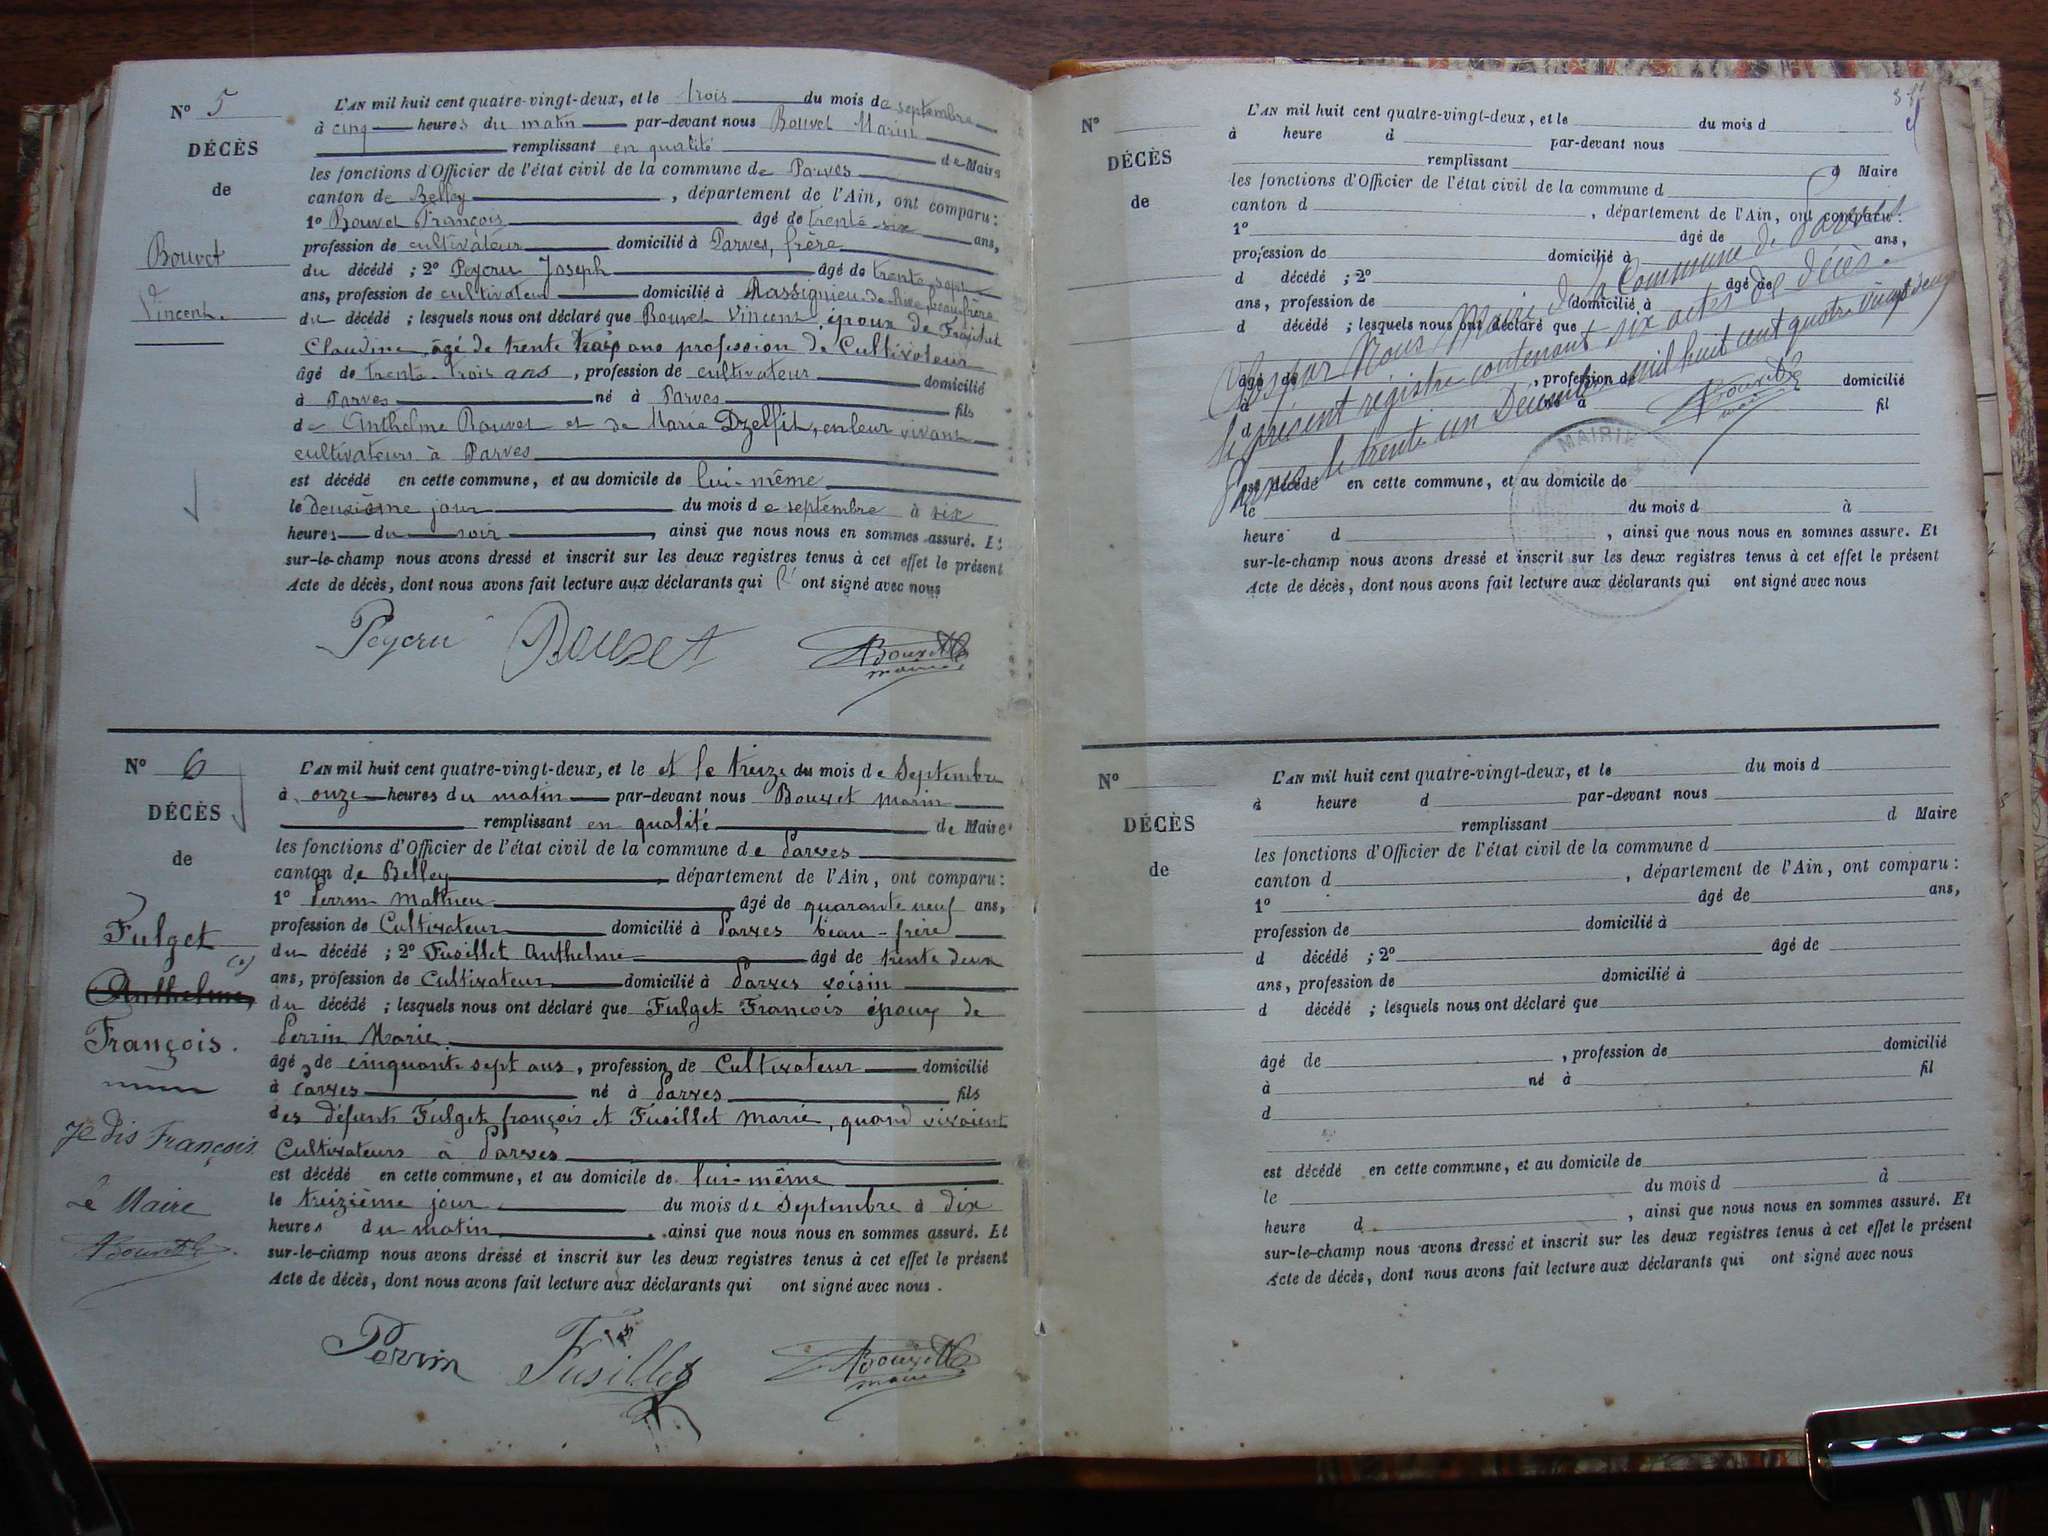 N° 5
DÉCÈS
de
Bouvet
Vincent.
L'AN mil huit cent quatre-vingt-deux, et le trois du mois de septembre
à cinq heures du matin par-devant nous Bouvet Marin
remplissant en qualité de Maire
les fonctions d'Officier de l'état civil de la commune de Parves
canton de Belley, département de l'Ain, ont comparu :
1° Bouvet François âgé de trente-six ans,
profession de cultivateur domicilié à Parves, frère
du décédé ; 2° Peycru Joseph âgé de trente-sept
ans, profession de cultivateur domicilié à Massignieu-de-Rive, beau-frère
du décédé ; lesquels nous ont déclaré que Bouvet Vincent, époux de
Claudine, âgé de trente trois ans profession de Cultivateur
âgé de trente-trois ans, profession de cultivateur domicilié
à Parves né à Parves fils
de Anthelme Bouvet et de Marie, en leur vivant
cultivateurs à Parves
est décédé en cette commune, et au domicile de lui-même
le deuxième jour du mois de septembre à six
heures du soir, ainsi que nous nous en sommes assuré. Et
sur-le-champ nous avons dressé et inscrit sur les deux registres tenus à cet effet le présent
Acte de décès, dont nous avons fait lecture aux déclarants qui l' ont signé avec nous
Peycru Bouvet Bouvet
maire
N° 6
DÉCÈS
de
Fulget
(a)
Anthelme
François.
Je dis François.
Le Maire
Bouvet
L'AN mil huit cent quatre-vingt-deux, et le et le treize du mois de Septembre
à onze heures du matin par-devant nous Bouvet Marin
remplissant en qualité de Maire
les fonctions d'Officier de l'état civil de la commune de Parves
canton de Belley, département de l'Ain, ont comparu :
1° Perrin Mathieu âgé de quarante neuf ans,
profession de Cultivateur domicilié à Parves beau-frère
du décédé ; 2° Fusillet Anthelme âgé de trente deux
ans, profession de Cultivateur domicilié à Parves voisin
du décédé ; lesquels nous ont déclaré que Fulget François époux de
Perrin Marie
âgé de cinquante sept ans, profession de Cultivateur domicilié
à Parves né à Parves fils
des défunts Fulget françois et Fusillet Marie, quand vivaient
Cultivateurs à Parves
est décédé en cette commune, et au domicile de lui-même
le treizième jour du mois de Septembre à dix
heures du matin, ainsi que nous nous en sommes assuré. Et
sur-le-champ nous avons dressé et inscrit sur les deux registres tenus à cet effet le présent
Acte de décès, dont nous avons fait lecture aux déclarants qui ont signé avec nous.
Perrin Fusillet Bouvet
maire
N°
DÉCÈS
de
L'AN mil huit cent quatre-vingt-deux, et le du mois d
à heure d par-devant nous
remplissant d Maire
les fonctions d'Officier de l'état civil de la commune d
canton d , département de l'Ain, ont comparu :
1° âgé de ans,
profession de domicilié à
d décédé ; 2° âgé de
ans, profession de domicilié à
d décédé ; lesquels nous ont déclaré que
âgé de , profession de domicilié
à né à fil
d
Clos par Nous Maire de la Commune de Parves
le présent registre contenant six actes de décès.
Parves le trente un Décembre mil huit cent quatre vingt deux
Bouvet
MAIRIE
est décédé en cette commune, et au domicile de
le du mois d à
heure d , ainsi que nous nous en sommes assure. Et
sur-le-champ nous avons dressé et inscrit sur les deux registres tenus à cet effet le présent
Acte de décès, dont nous avons fait lecture aux déclarants qui ont signé avec nous
N°
DÉCÈS
de
L'AN mil huit cent quatre-vingt-deux, et le du mois d
à heure d par-devant nous
remplissant d Maire
les fonctions d'Officier de l'état civil de la commune d
canton d , département de l'Ain, ont comparu :
1° âgé de ans,
profession de domicilié à
d décédé ; 2° âgé de
ans, profession de domicilié à
d décédé ; lesquels nous ont déclaré que
âgé de , profession de domicilié
à né à fil
d
est décédé en cette commune, et au domicile de
le du mois d à
heure d , ainsi que nous nous en sommes assuré. Et
sur-le-champ nous avons dressé et inscrit sur les deux registres tenus à cet effet le présent
Acte de décès, dont nous avons fait lecture aux déclarants qui ont signé avec nous